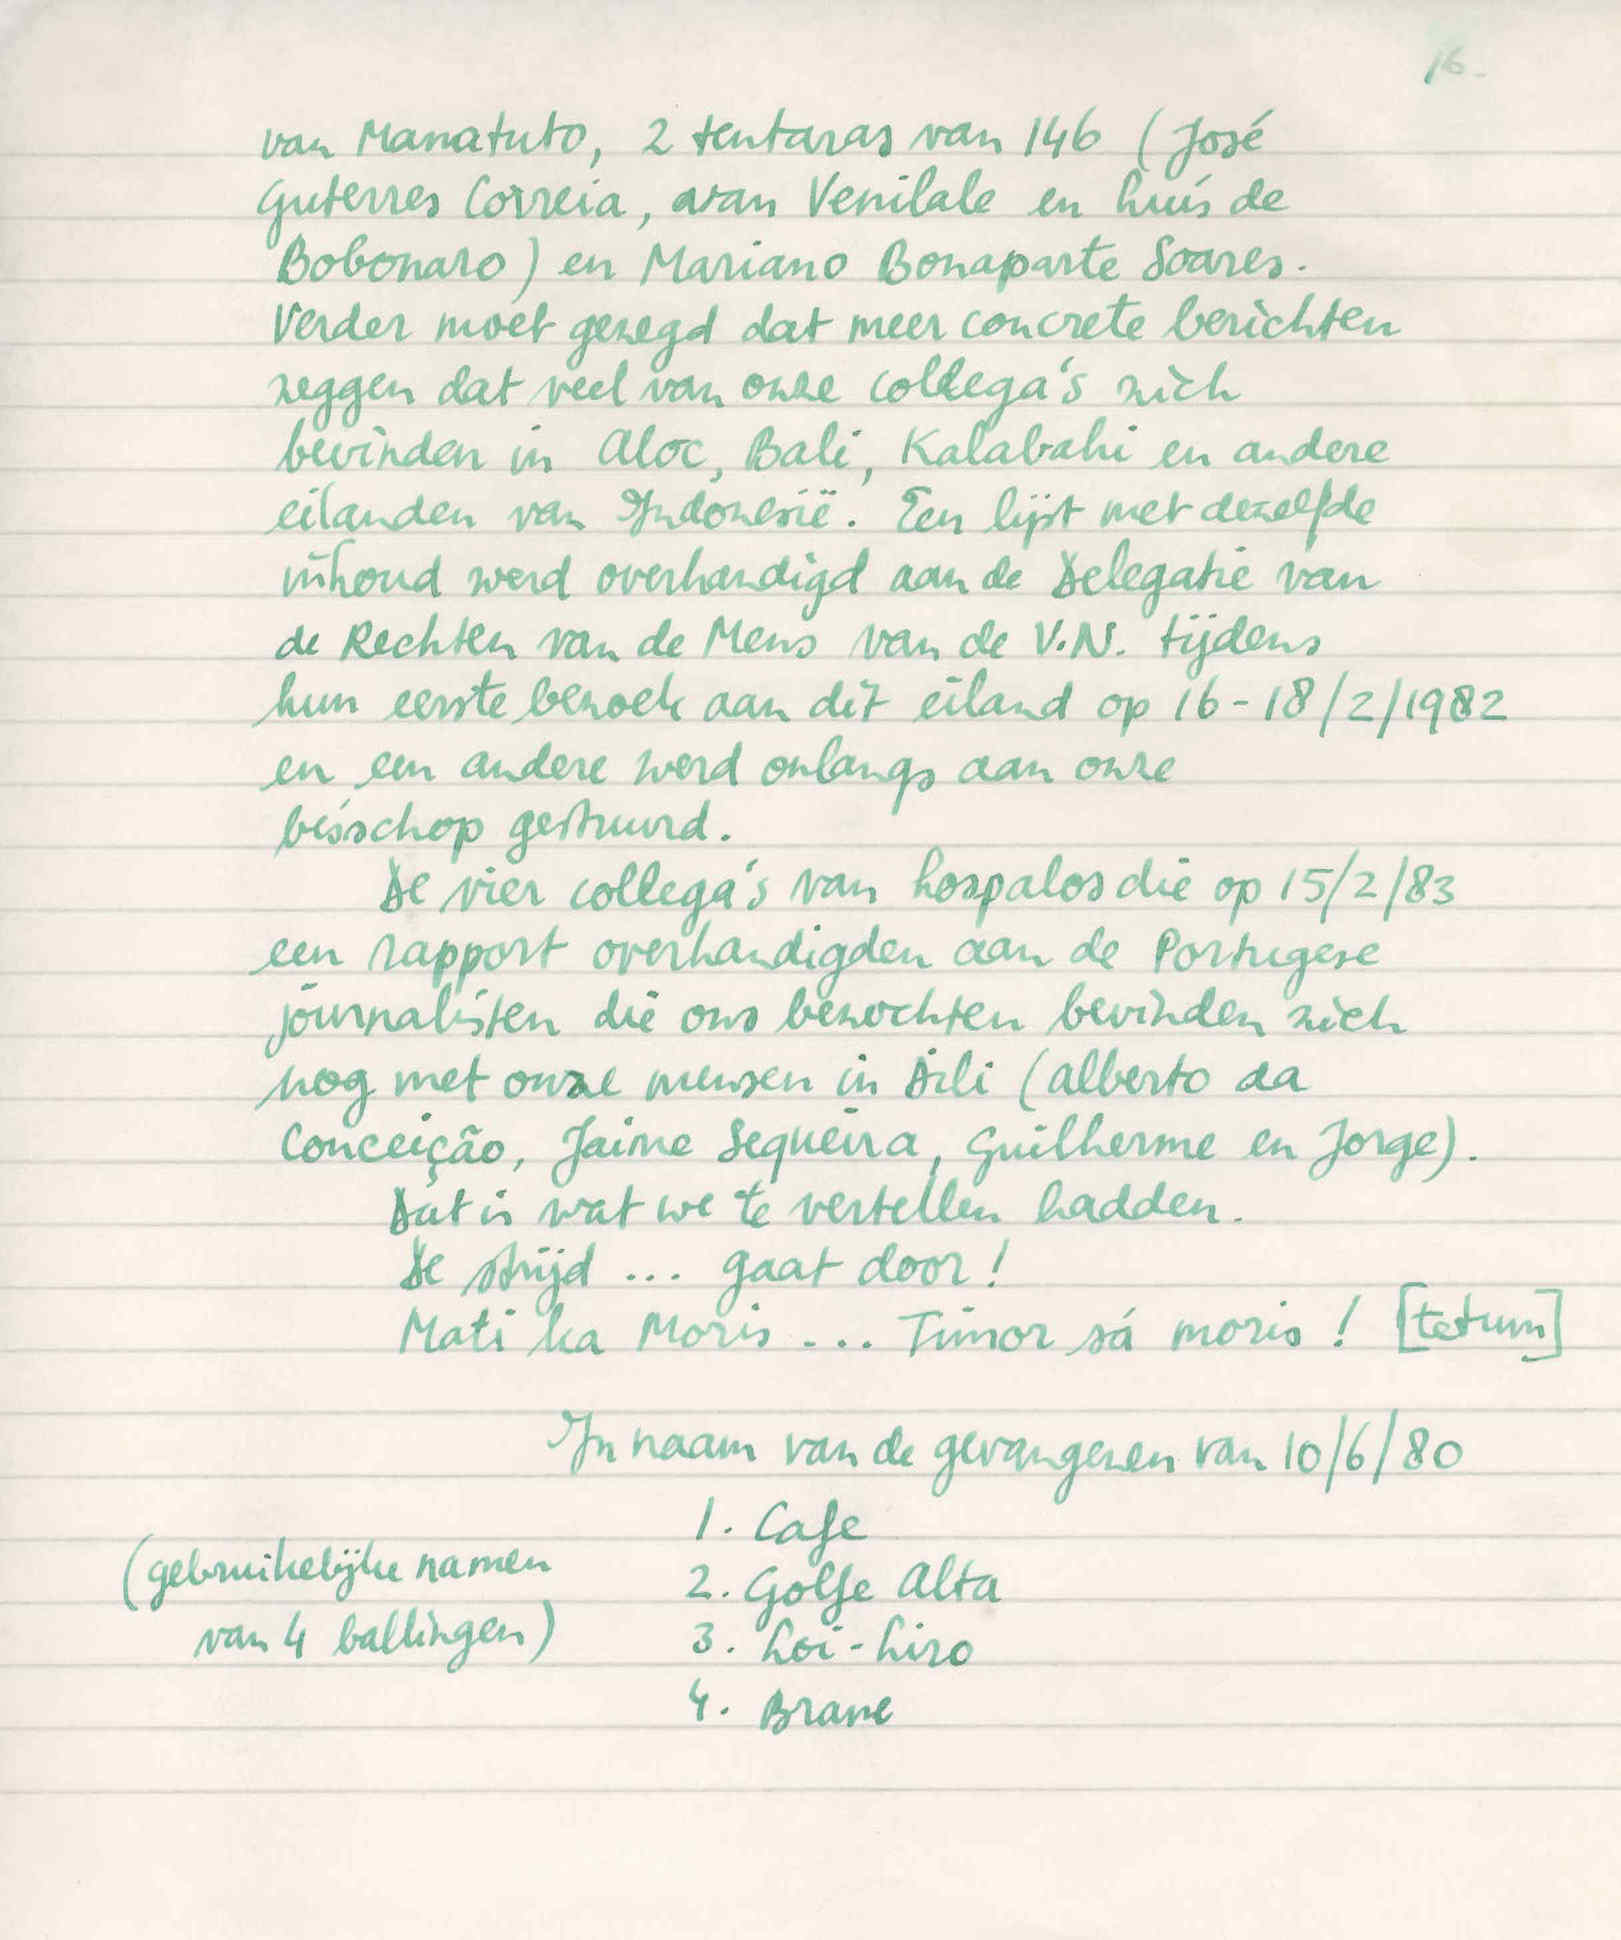 16.
van Manatuto, 2 tentaras van 146 (José
Guterres Correia, van Venilale en Luís de
Bobonaro) en Mariano Bonaparte Soares.
Verder moet gezegd dat meer concrete berichten
zeggen dat veel van onze collega's zich
bevinden in Aloc, Bali, Kalabahi en andere
eilanden van Indonesië. Een lijst met dezelfde
inhoud werd overhandigd aan de Delegatie van
de Rechten van de Mens van de V.N. tijdens
hun eerste bezoek aan dit eiland op 16-18/2/1982
en een andere werd onlangs aan onze
bisschop gestuurd.
De vier collega's van Lospalos die op 15/2/83
een rapport overhandigden aan de Portugese
journalisten die ons bezochten bevinden zich
nog met onze mensen in Dili (Alberto da
Conceição, Jaime Sequeira, Guilherme en Jorge).
Dat is wat we te vertellen hadden.
De strijd ... gaat door!
Mati ka Moris ... Timor sá moris! [tetum]
In naam van de gevangenen van 10/6/80
1. Cafe
(gebruikelijke namen
2. Golfe Alta
van 4 ballingen)
3. Loi-Liro
4. Brave